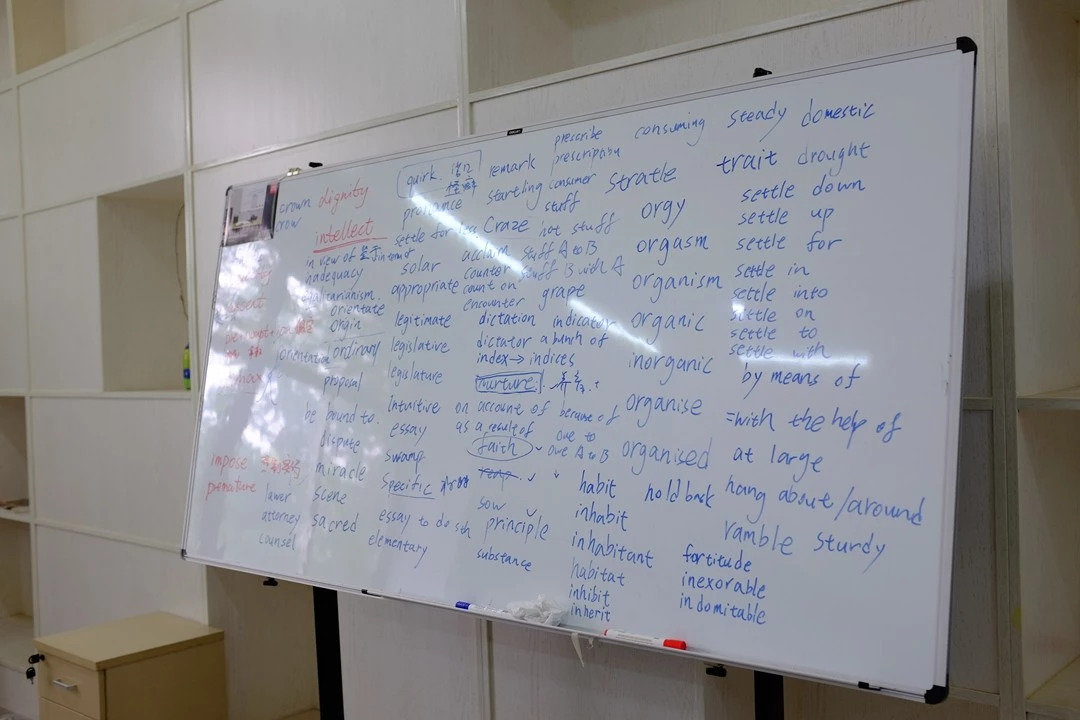 crown dignity
crow
intellect
in view of 鉴于
inadequacy
orientate
origin
ordinary
proposal
be bound to.
dispute
miracle
impose
premature
lawer
attorney
counsel
scene
sacred
quirk. 怪癖
settle for less
solar
appropriate
legitimate
legislative
legislature
Intuitive
essay
swamp
Specific
essay to do sth
elementary
prescribe
prescription
remark
startling consumer
stuff
Craze hot stuff
acclaim stuff A to B
counter stuff B with A
count on
encounter grape
dictation indicator
dictator a bunch of
index→indices
nurture
on account of because of
as a result of
due to
faith owe A to B
sow
principle
substance
consuming
Stratle
orgy
orgasm
organism
organic
inorganic
organise
organised
habit hold back
inhabit
inhabitant
habitat
inhibit
inherit
steady domestic
trait drought
settle down
settle up
settle for
settle in
settle into
settle on
settle to
settle with
by means of
=with the help of
at large
hang about/around
ramble sturdy
fortitude
inexorable
indomitable